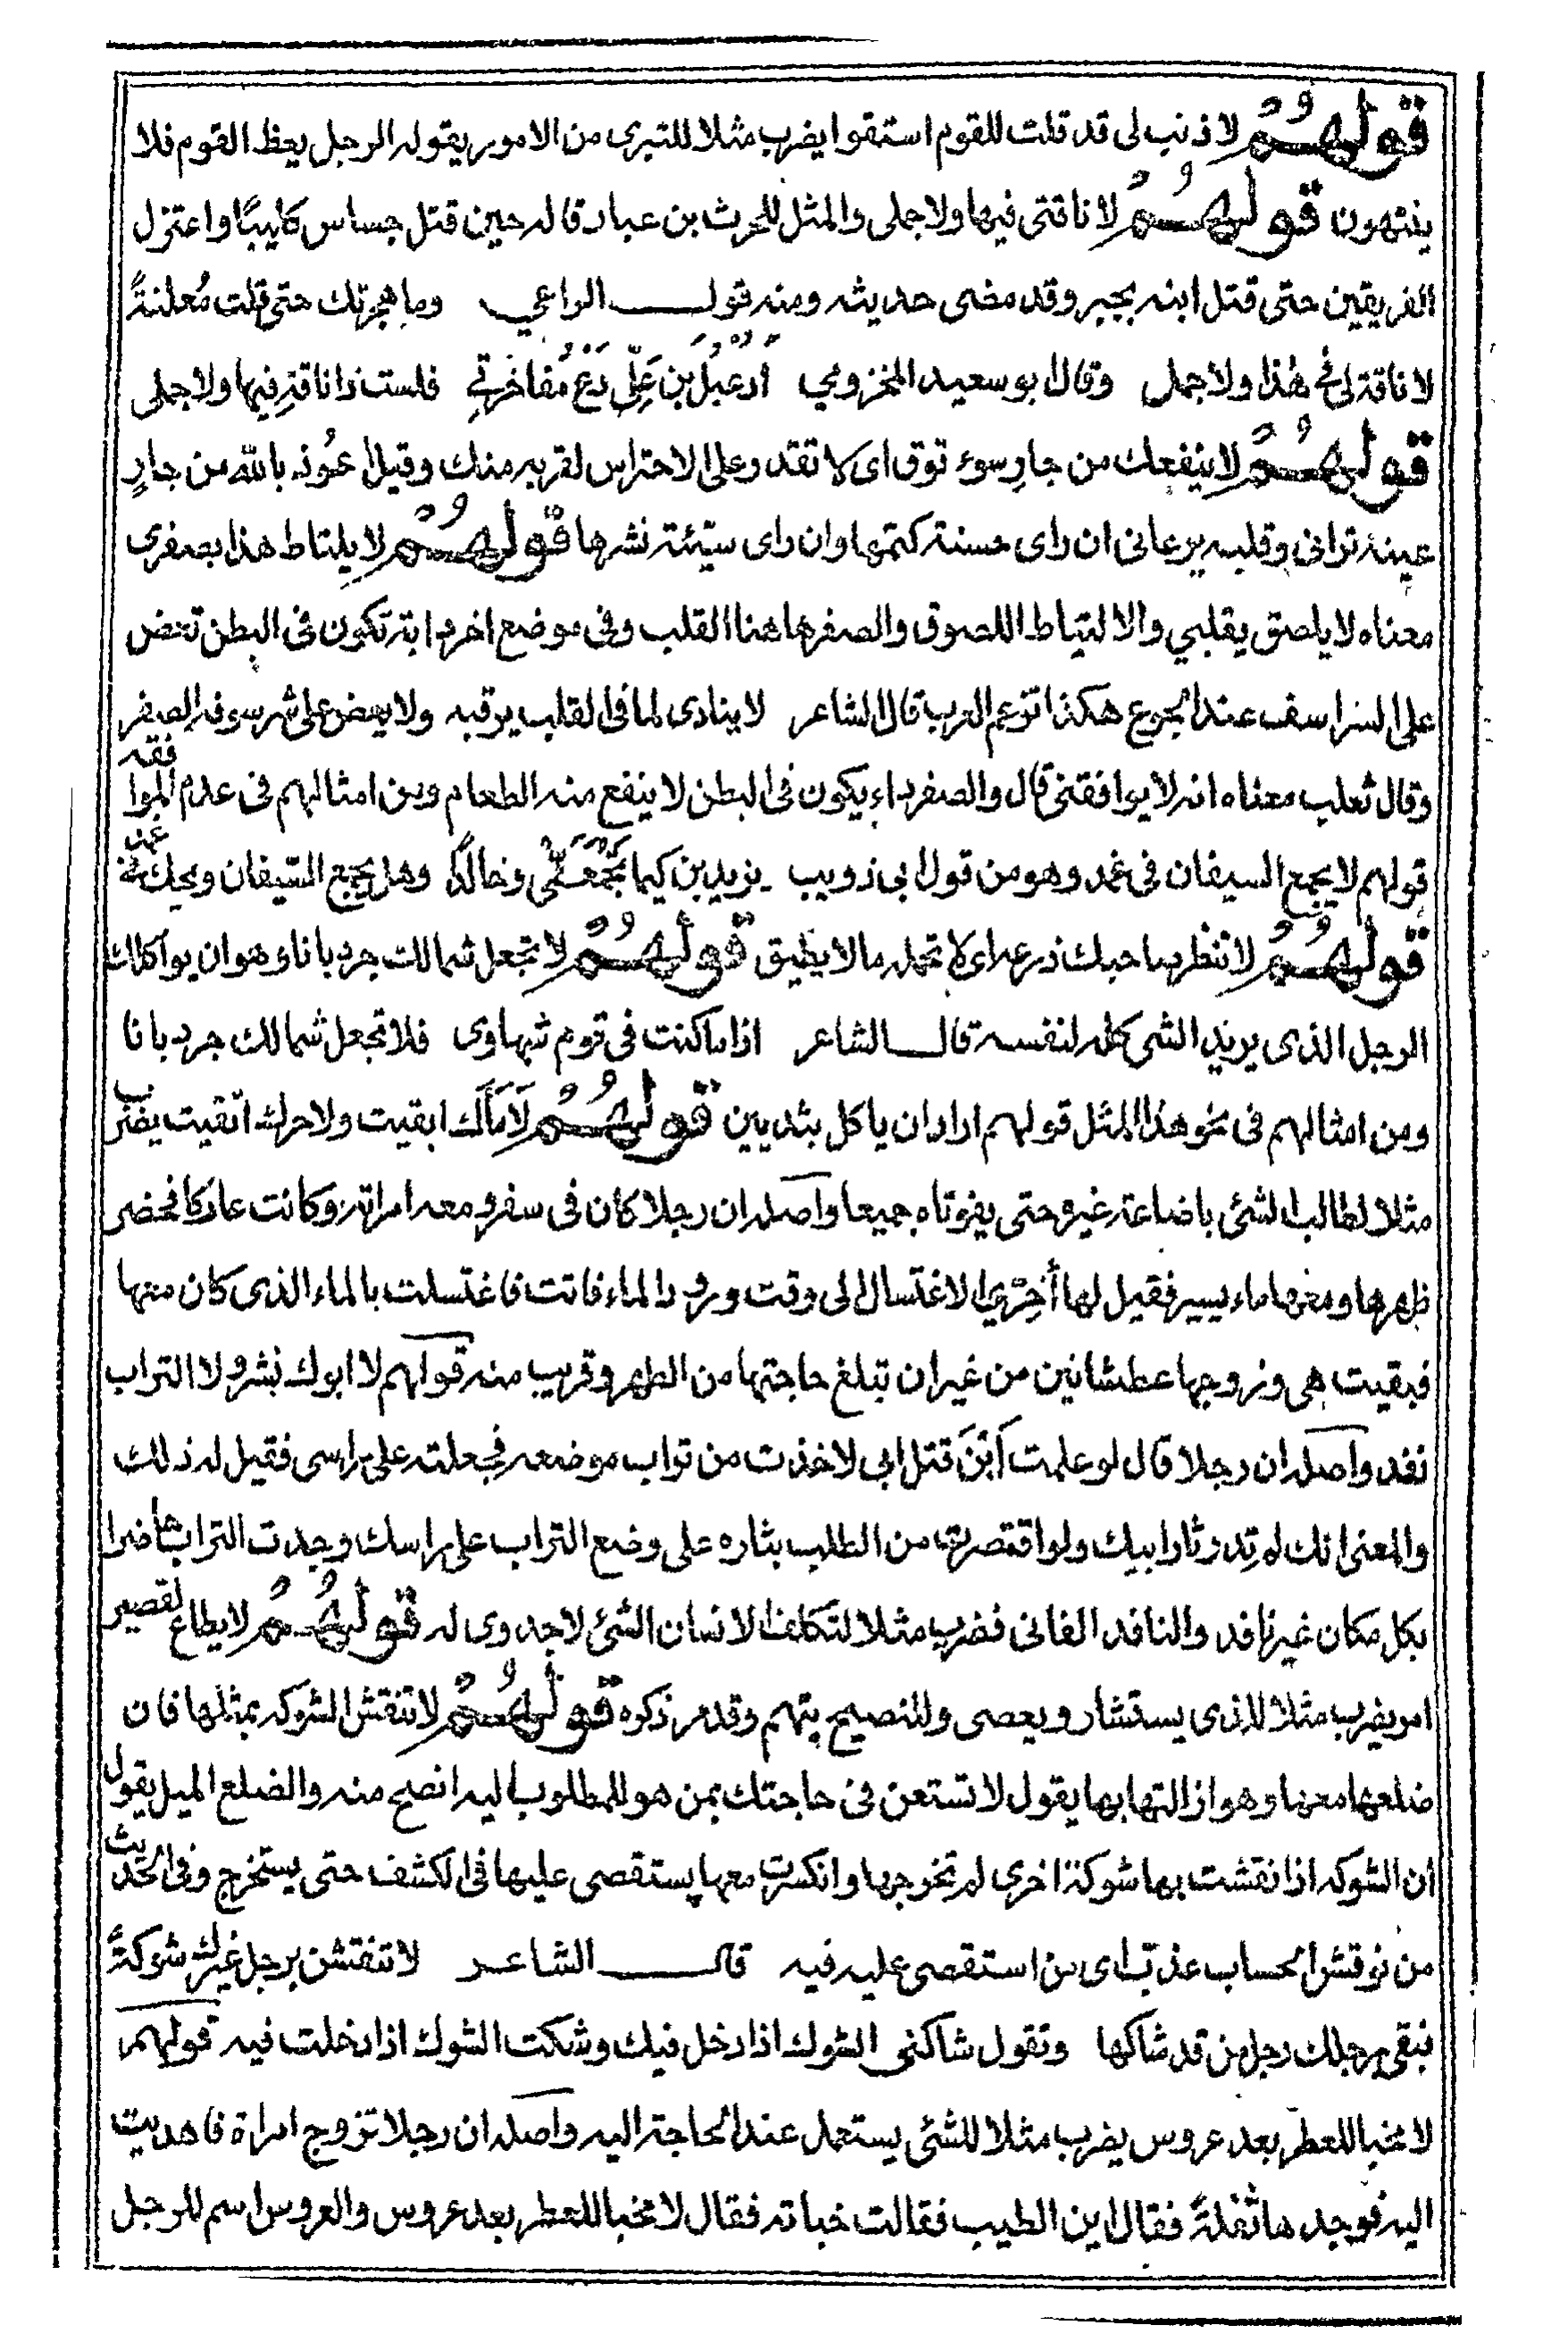 قولهُمُ لا ذنب لى قد قلت للقوم استقوا يضرب مثلا للتبرى من الامور يقوله الرجل يعظ القوم فلا
ينتهون قولهُمُ لا ناقتى فيها ولا جملى والمثل للحرث بن عباد قاله حين قتل جساس كليبًا واعتزل
الفريقين حتى قتل ابنه بجير وقد مضى حديثه ومنه قول الراعي وما هجرتك حتى قلت مُعلنةً
لا ناقة لى فى هٰذا ولا جمل وقال ابو سعيد المخزومي اَدِعْبِلُ بن عَلِىّ دَعْ مُفاخَرتى فلست ذا ناقةٍ فيها ولا جملى
قولهُمُ لا ينفعك من جارِ سوء توق اى لا تقدر على الاحتراس لقربه منك وقيل اعُوذ بالله من جارٍ
عينهُ ترانى وقلبه يرعانى ان راى حسنة كتمها وان راى سيّئة نشرها قولهُم لا يلتاط هذا بصفرى
معناه لا يلصق بقلبي والالتياط اللصوق والصفر هاهنا القلب وفى موضع اخر دابة تكون فى البطن تعض
على الشراسف عند الجوع هكذا تزعم العرب قال الشاعر لا ينادى لما فى القلب يرقبه ولا يعض على شرسوفه الصفر
وقال ثعلب معناه انه لا يوافقنى قال والصفر داء يكون فى البطن لا ينفع منه الطعام ومن امثالهم فى عدم الموافقه
قولهم لا يجمع السيفان فى غمد وهو من قول ابى ذويب يزيد بن كيما تجمعنى وخالدًا وهل يجمع السّيفان ويحك فى غمد
قولهُمُ لا تنظر صاحبك ذرعه اى لا تحمله ما لا يطيق قولهُمُ لا تجعل شمالك جردبانا وهو ان يواكلك
الرجل الذى يريد الشى كله لنفسه قال الشاعر اذا ما كنت فى قوم شهاوى فلا تجعل شمالك جردبانا
ومن امثالهم فى نحو هذا المثل قولهم اراد ان ياكل بثديين قولهُمُ لا مَاءَك ابقيت ولا حرك انقيت يضرب
مثلا لطالب الشئ باضاعة غيره حتى يفوتاه جميعا واصله ان رجلا كان فى سفر ومعه امراته وكانت عاركا فحضر
طهرها ومعها ماء يسير فقيل لها أَخِّرِي الاغتسال الى وقت ورود الماء فابت فاغتسلت بالماء الذى كان معها
فبقيت هى وزوجها عطشانين من غير ان تبلغ حاجتها من الطهر وقريب منه قولهم لا ابوك نشر ولا التراب
نفد واصله ان رجلا قال لو علمت اَيْنَ قتل ابي لاخذت من تراب موضعه فجعلته على راسى فقيل له ذلك
والمعنى انك لم تدرك ثار ابيك ولو اقتصرت من الطلب بثاره على وضع التراب على راسك وجدت التراب حاضرا
بكل مكان غير نافد والنافد الفانى فضرب مثلا لتكلف الانسان الشئ لا جدوى له قولهُمُ لا يطاع لقصير
امر يضرب مثلا للذى يستشار ويعصى وللنصيح يتهم وقد مر ذكره قولهُمُ لا تنقش الشوكه بمثلها فان
ضلعها معها وهو از التها بها يقول لا تستعن فى حاجتك بمن هو للمطلوب اليه انصح منه والضلع الميل يقول
ان الشوكه اذا نقشت بها شوكة اخرى لم تخرجها وانكسرت معها يستقصى عليها فى الكشف حتى يستخرج وفى الحديث
من نوقش الحساب عذب اى من استقصى عليه فيه قال الشاعر لا تنقشن برجل غيرك شوكةً
فبقى برجلك رجل من قد شاكها وتقول شاكنى الشوك اذا دخل فيك وشكت الشوك اذا دخلت فيه قولهم
لا مخبا للعطر بعد عروس يضرب مثلا للشئ يستعمل عند الحاجة اليه واصله ان رجلا تزوج امراة فاهديت
اليه فوجدها ثفلةً فقال اين الطيب فقالت خباته فقال لا مخبا للعطر بعد عروس والعروس اسم للرجل